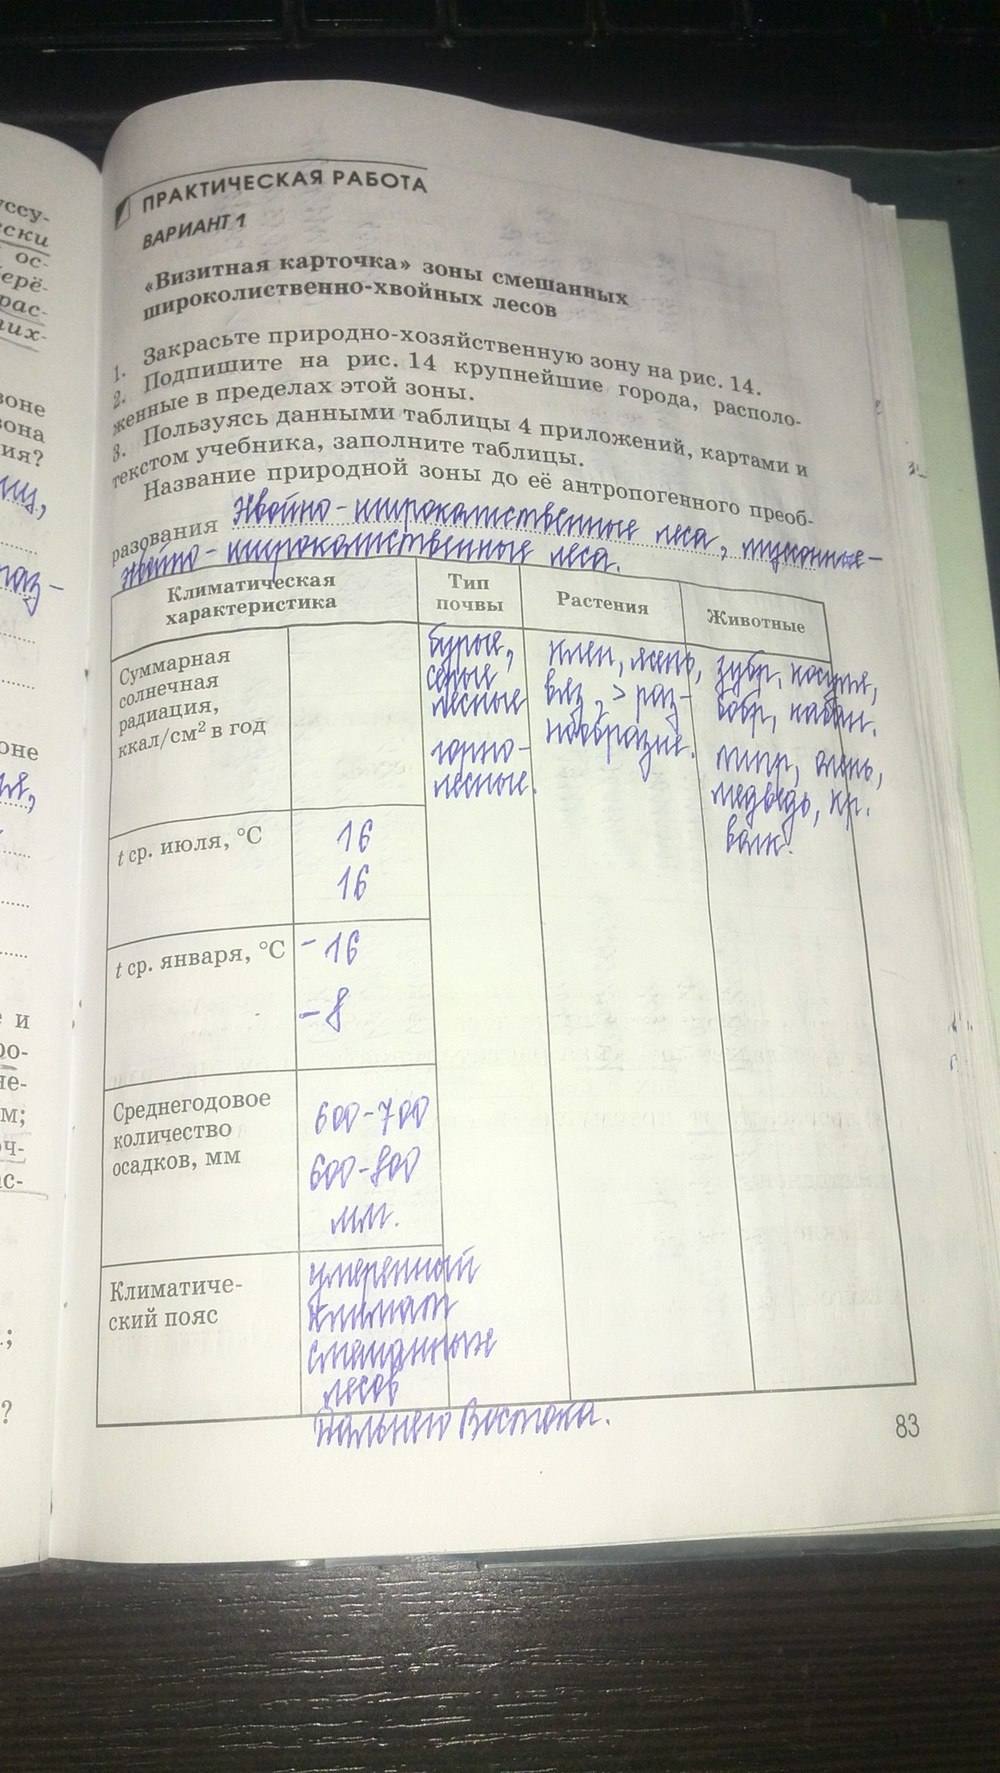 ссу-
ски
ос-
ерё-
рас-
их-
зоне
зона
ия?
оне
е и
ро-
не-
м;
ч-
с-
?
ПРАКТИЧЕСКАЯ РАБОТА
ВАРИАНТ 1
«Визитная карточка» зоны смешанных
широколиственно-хвойных лесов
1. Закрасьте природно-хозяйственную зону на рис. 14.
2. Подпишите на рис. 14 крупнейшие города, располо-
женные в пределах этой зоны.
3. Пользуясь данными таблицы 4 приложений, картами и
текстом учебника, заполните таблицы.
Название природной зоны до её антропогенного преоб-
разования Хвойно-широколиственные леса, муссонные-
хвойно-широколиственные леса.
Климатическая
характеристика
Тип
почвы
Растения
Животные
Суммарная
солнечная
радиация,
ккал/см² в год
бурые,
серые
лесные
горно-
лесные.
клен, ясень,
вяз, > раз-
нообразие.
зубр, косуля,
бобр, кабан.
тигр, олень,
медведь, кр.
волк.
t ср. июля, °C
16
16
t ср. января, °C
-16
-8
Среднегодовое
количество
осадков, мм
600-700
600-800
мм.
Климатиче-
ский пояс
умеренный
климат
смешанные
лесов
Дальнего Востока.
83